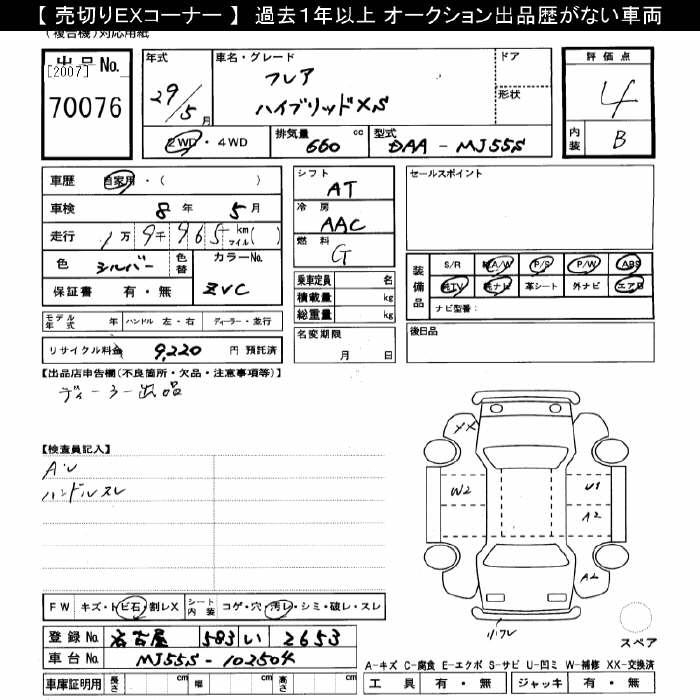 【 売切りEXコーナー 】 過去1年以上 オークション出品歴がない車両
(複合機)対応用紙
出品 No.
[2007]
70076
年式
29/5 月
車名・グレード
フレア
ハイブリッドXS
ドア
形状
評価点
4
内装 B
2WD・4WD
排気量 660 cc
型式 DAA-MJ55S
車歴 自家用・( )
車検 8 年 5 月
走行 1万 9千 965 km マイル( )
色 シルバー 色替
カラーNo. ZVC
保証書 有・無
シフト AT
冷房 AAC
燃料 G
乗車定員 名
積載量 kg
総重量 kg
名変期限
月 日
セールスポイント
装備品
S/R 純A/W P/S P/W ABS
純TV 純ナビ 革シート 外ナビ エアB
ナビ型番:
後日品
モデル年式 年 ハンドル 左・右 ディーラー・並行
リサイクル料金 9,220 円 預託済
【出品店申告欄(不良箇所・欠品・注意事項等)】
ディーラー出品
【検査員記入】
A・U
ハンドルスレ
XX
W2
U1
A2
A2
リハレ
FW キズ・トビ石・割レX シート内装 コゲ・穴・汚レ・シミ・破レ・スレ
登録 No. 名古屋 583 い 2653
車台 No. MJ55S-102504
車庫証明用 長さ cm 幅 cm 高さ cm
スペア
A-キズ C-腐食 E-エクボ S-サビ U-凹ミ W-補修 XX-交換済
工具 有・無 ジャッキ 有・無